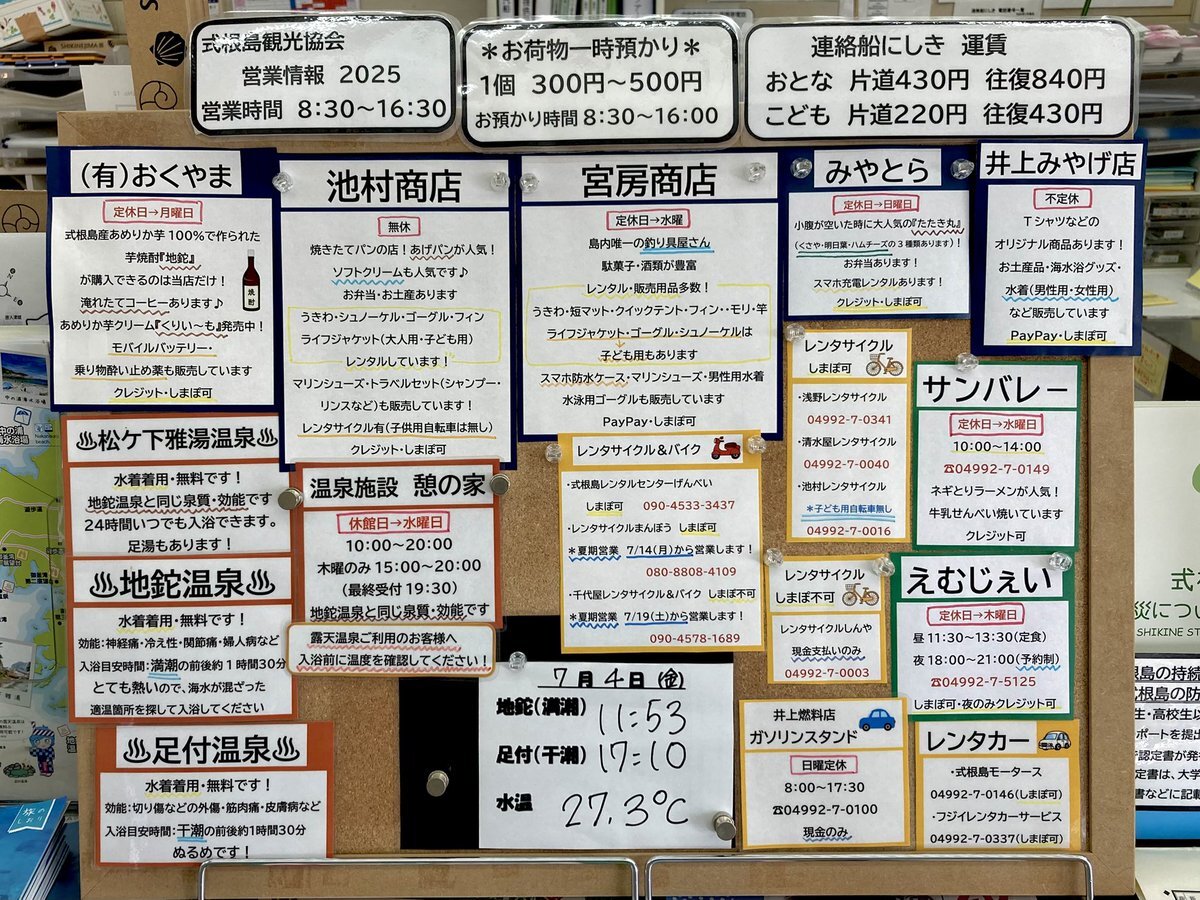 式根島観光協会
営業情報 2025
営業時間 8:30～16:30
＊お荷物一時預かり＊
1個 300円～500円
お預かり時間 8:30～16:00
連絡船にしき 運賃
おとな 片道430円 往復840円
こども 片道220円 往復430円
(有)おくやま
定休日→月曜日
式根島産あめりか芋100%で作られた
芋焼酎『地鉈』
が購入できるのは当店だけ！
淹れたてコーヒーあります♪
あめりか芋クリーム『くりぃ～も』発売中！
モバイルバッテリー・
乗り物酔い止め薬も販売しています
クレジット・しまぽ可
焼酎
池村商店
無休
焼きたてパンの店！あげパンが人気！
ソフトクリームも人気です♪
お弁当・お土産あります
うきわ・シュノーケル・ゴーグル・フィン
ライフジャケット(大人用・子ども用)
レンタルしています！
マリンシューズ・トラベルセット(シャンプー・
リンスなど)も販売しています！
レンタサイクル有(子供用自転車は無し)
クレジット・しまぽ可
宮房商店
定休日→水曜
島内唯一の釣り具屋さん
駄菓子・酒類が豊富
レンタル・販売用品多数！
うきわ・短マット・クイックテント・フィン・・モリ・竿
ライフジャケット・ゴーグル・シュノーケルは
子ども用もあります
スマホ防水ケース・マリンシューズ・男性用水着
水泳用ゴーグルも販売しています
PayPay・しまぽ可
みやとら
定休日→日曜日
小腹が空いた時に大人気の『たたき丸』
(くさや・明日葉・ハムチーズの3種類あります)！
お弁当あります！
スマホ充電レンタルあります！
クレジット・しまぽ可
井上みやげ店
不定休
Tシャツなどの
オリジナル商品あります！
お土産品・海水浴グッズ・
水着(男性用・女性用)
など販売しています
PayPay・しまぽ可
♨松ケ下雅湯温泉♨
水着着用・無料です！
地鉈温泉と同じ泉質・効能です
24時間いつでも入浴できます。
足湯もあります！
♨地鉈温泉♨
水着着用・無料です！
効能:神経痛・冷え性・関節痛・婦人病など
入浴目安時間:満潮の前後約1時間30分
とても熱いので、海水が混ざった
適温箇所を探して入浴してください
♨足付温泉♨
水着着用・無料です！
効能:切り傷などの外傷・筋肉痛・皮膚病など
入浴目安時間:干潮の前後約1時間30分
ぬるめです！
温泉施設 憩の家
休館日→水曜日
10:00～20:00
木曜のみ 15:00～20:00
(最終受付 19:30)
地鉈温泉と同じ泉質・効能です
露天温泉ご利用のお客様へ
入浴前に温度を確認してください！
7月4日(金)
地鉈(満潮) 11:53
足付(干潮) 17:10
水温 27.3℃
レンタサイクル&バイク
・式根島レンタルセンターげんべい
しまぽ可 090-4533-3437
・レンタサイクルまんぼう しまぽ可
＊夏期営業 7/14(月)から営業します！
080-8808-4109
・千代屋レンタサイクル&バイク しまぽ不可
＊夏期営業 7/19(土)から営業します！
090-4578-1689
レンタサイクル
しまぽ可
・浅野レンタサイクル
04992-7-0341
・清水屋レンタサイクル
04992-7-0040
・池村レンタサイクル
＊子ども用自転車無し
04992-7-0016
レンタサイクル
しまぽ不可
レンタサイクルしんや
現金支払いのみ
04992-7-0003
サンバレー
定休日→水曜日
10:00～14:00
☎04992-7-0149
ネギとりラーメンが人気！
牛乳せんべい焼いています
クレジット可
えむじぇい
定休日→木曜日
昼 11:30～13:30(定食)
夜 18:00～21:00(予約制)
☎04992-7-5125
しまぽ可・夜のみクレジット可
井上燃料店
ガソリンスタンド
日曜定休
8:00～17:30
☎04992-7-0100
現金のみ
レンタカー
・式根島モータース
04992-7-0146(しまぽ可)
・フジイレンタカーサービス
04992-7-0337(しまぽ可)